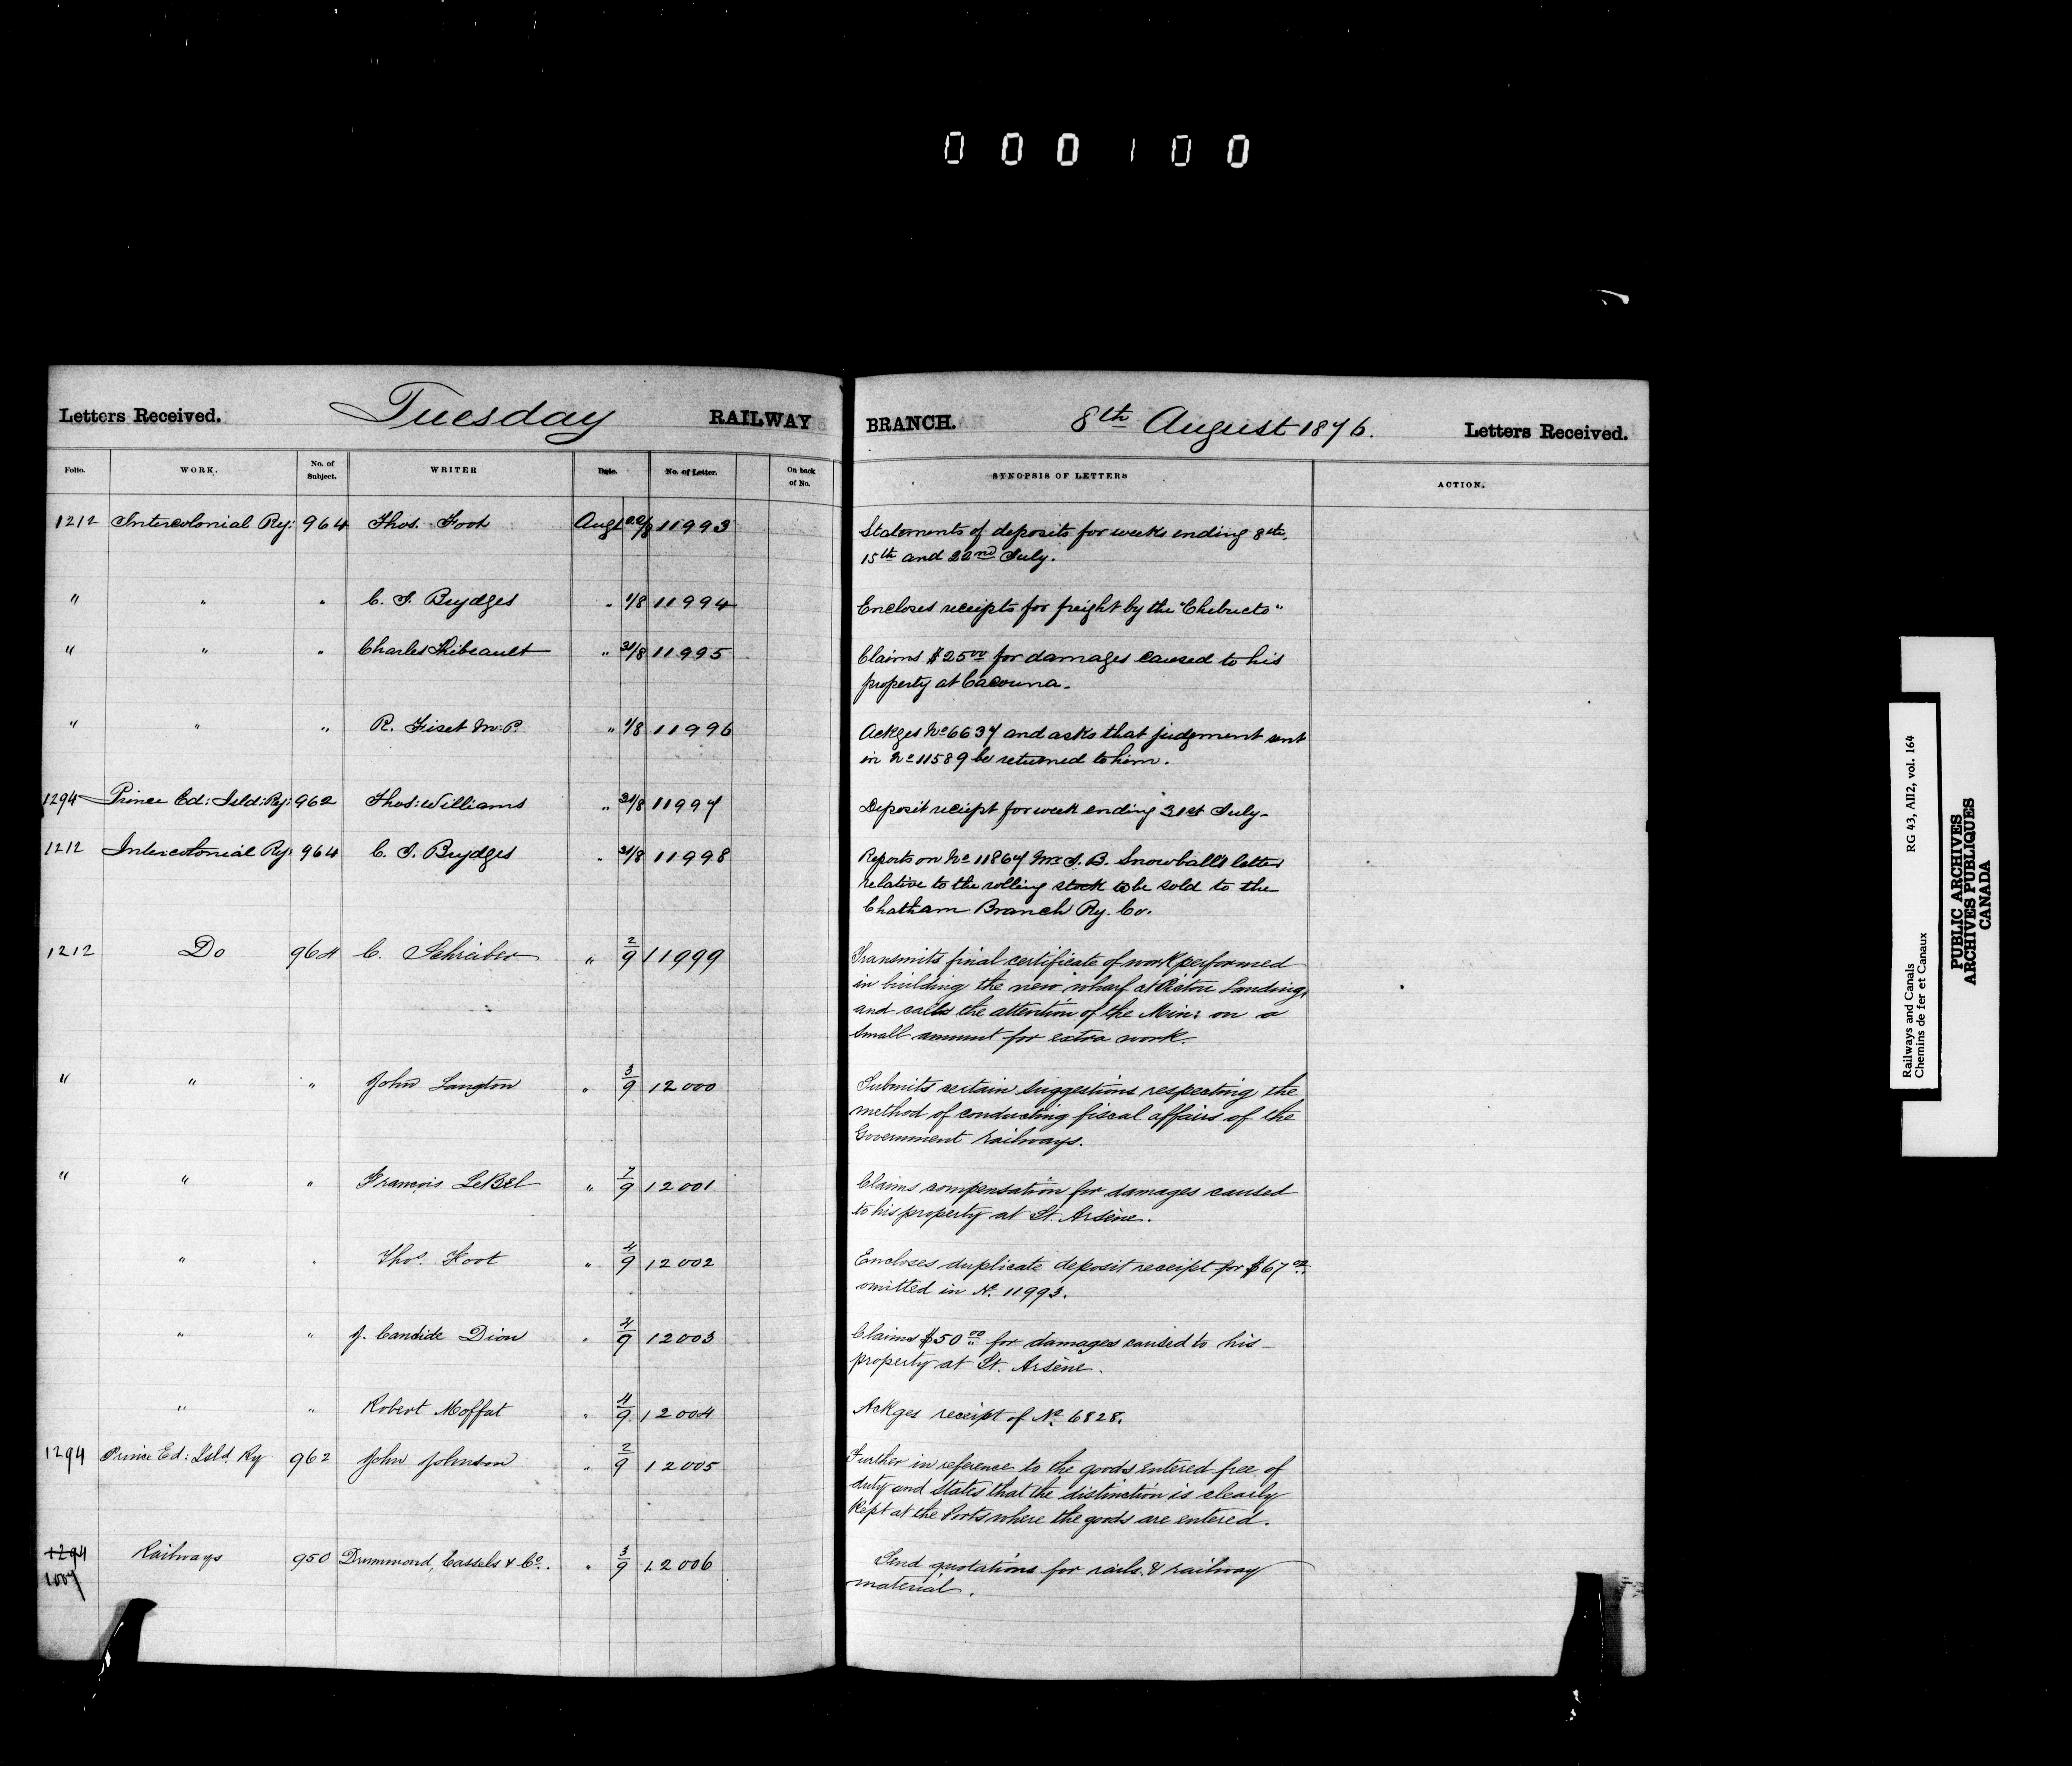 000100
Letters Received. Tuesday RAILWAY BRANCH. 8th August 1876. Letters Received.
Folio. WORK. No. of Subject. WRITER Date. No. of Letter. On back of No. SYNOPSIS OF LETTERS ACTION.
1212 Intercolonial Ry: 964 Thos. Foot Augt /8 11993 Statements of deposits for weeks ending 8th,
15th and 22nd July.
" " " C. J. Brydges " 1/8 11994 Encloses receipts for freight by the "Chebucto"
" " " Charles Thibeault " 31/8 11995 Claims $25 00 for damages caused to his
property at Cacouna.
" " " R. Fiset M.P. " 1/8 11996 Ackges No 6637 and asks that judgment sent
in No 11589 be returned to him.
1294 Prince Ed: Isld: Ry: 962 Thos: Williams " 31/8 11997 Deposit receipt for week ending 31st July.
1212 Intercolonial Ry. 964 C. J. Brydges " 31/8 11998 Reports on No 11867 Mr J. B. Snowball's letter
relative to the rolling stock to be sold to the
Chatham Branch Ry. Co.
1212 Do 964 C. Schreiber " 2/9 11999 Transmits final certificate of work performed
in building the new wharf at Pictou Landing,
and calls the attention of the Min: on a
small amount for extra work.
" " " John Langton " 3/9 12000 Submits certain suggestions respecting the
method of conducting fiscal affairs of the
Government railways.
" " " François LeBel " 7/9 12001 Claims compensation for damages caused
to his property at St. Arsène.
" " Thos. Foot " 4/9 12002 Encloses duplicate deposit receipt for $67
omitted in No. 11993.
" " J. Candide Dion " 4/9 12003 Claims $50 00 for damages caused to his
property at St. Arsène.
" " Robert Moffat " 4/9 12004 Ackges receipt of No. 6828.
1294 Prince Ed: Isld. Ry 962 John Johnson " 2/9 12005 Further in reference to the goods entered free of
duty and states that the distinction is clearly
kept at the Ports where the goods are entered.
1294 Railways 950 Drummond, Cassels & Co. " 3/9 12006 Send quotations for rails & railway
1007 material.
Railways and Canals RG 43, AII2, vol. 164
Chemins de fer et Canaux
PUBLIC ARCHIVES
ARCHIVES PUBLIQUES
CANADA